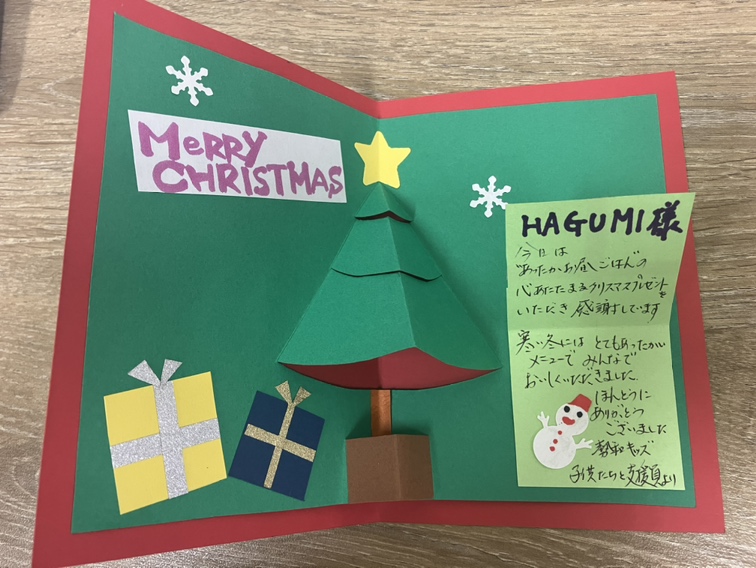 MERRY
CHRISTMAS
HAGUMI様
今日は
"あったかお昼ごはん"の
心あたたまるクリスマスプレゼントを
いただき 感謝しています
寒い冬には とてもあったかい
メニューで みんなで
おいしくいただきました。
ほんとうに
ありがとう
ございました
キッズ
子供たちと支援員より